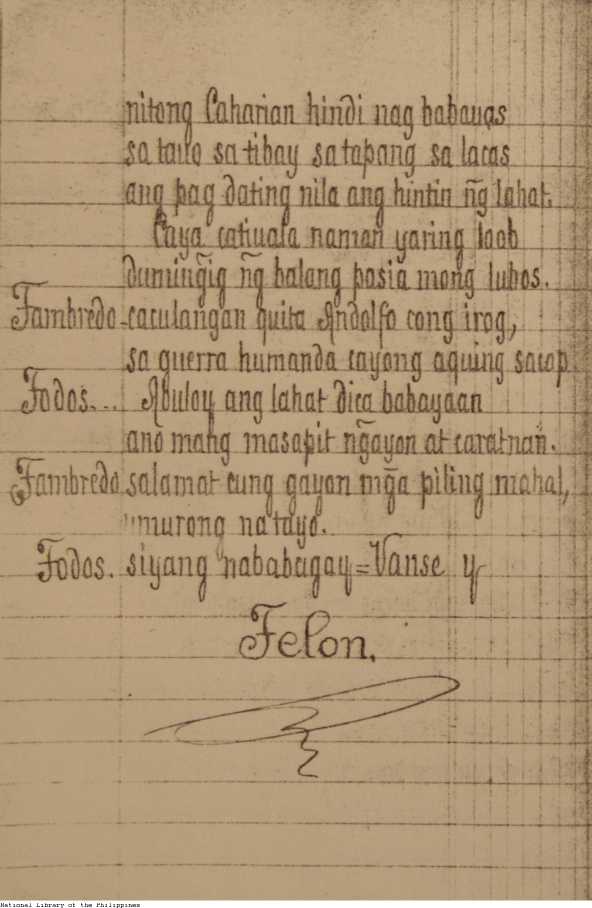 nitong Caharian hindi nag babauas
sa tauo sa tibay sa tapang sa lacas
ang pag dating nila ang hintin ñg lahat.
Caya catiuala naman yaring loob
dumiñgig ñg balang pasia mong lubos.
Fambredo - caculangan quita Andolfo cong irog,
sa guerra humanda cayong aquing sacop
Todos... Abuloy ang lahat dica babayaan
ano mang masapit ñgayon at caratnan.
Fambredo salamat cung gayon mg̃a piling mahal,
umurong na tayo.
Todos. siyang nababagay = Vanse y
Telon.
National Library of the Philippines